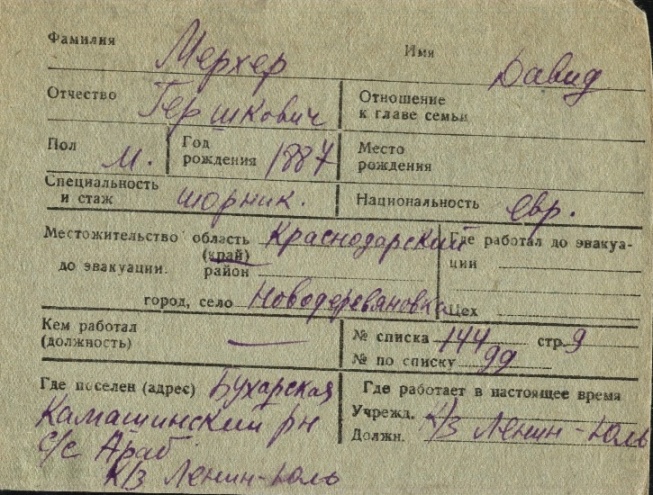 Фамилия Мерхер Имя Давид
Отчество Гершкович Отношение к главе семьи
Пол М. Год рождения 1887 Место рождения
Специальность и стаж шорник. Национальность евр.
Местожительство область Краснодарский Где работал до эвакуа-
(край) ции
до эвакуации. район
город, село Новодеревяновка Цех
Кем работал (должность) — № списка 144 стр. 9
№ по списку 99
Где поселен (адрес) Бухарская Где работает в настоящее время
Камашинский рн Учрежд. К/з Ленин-юль
с/с Араб Должн.
К/з Ленин-юль